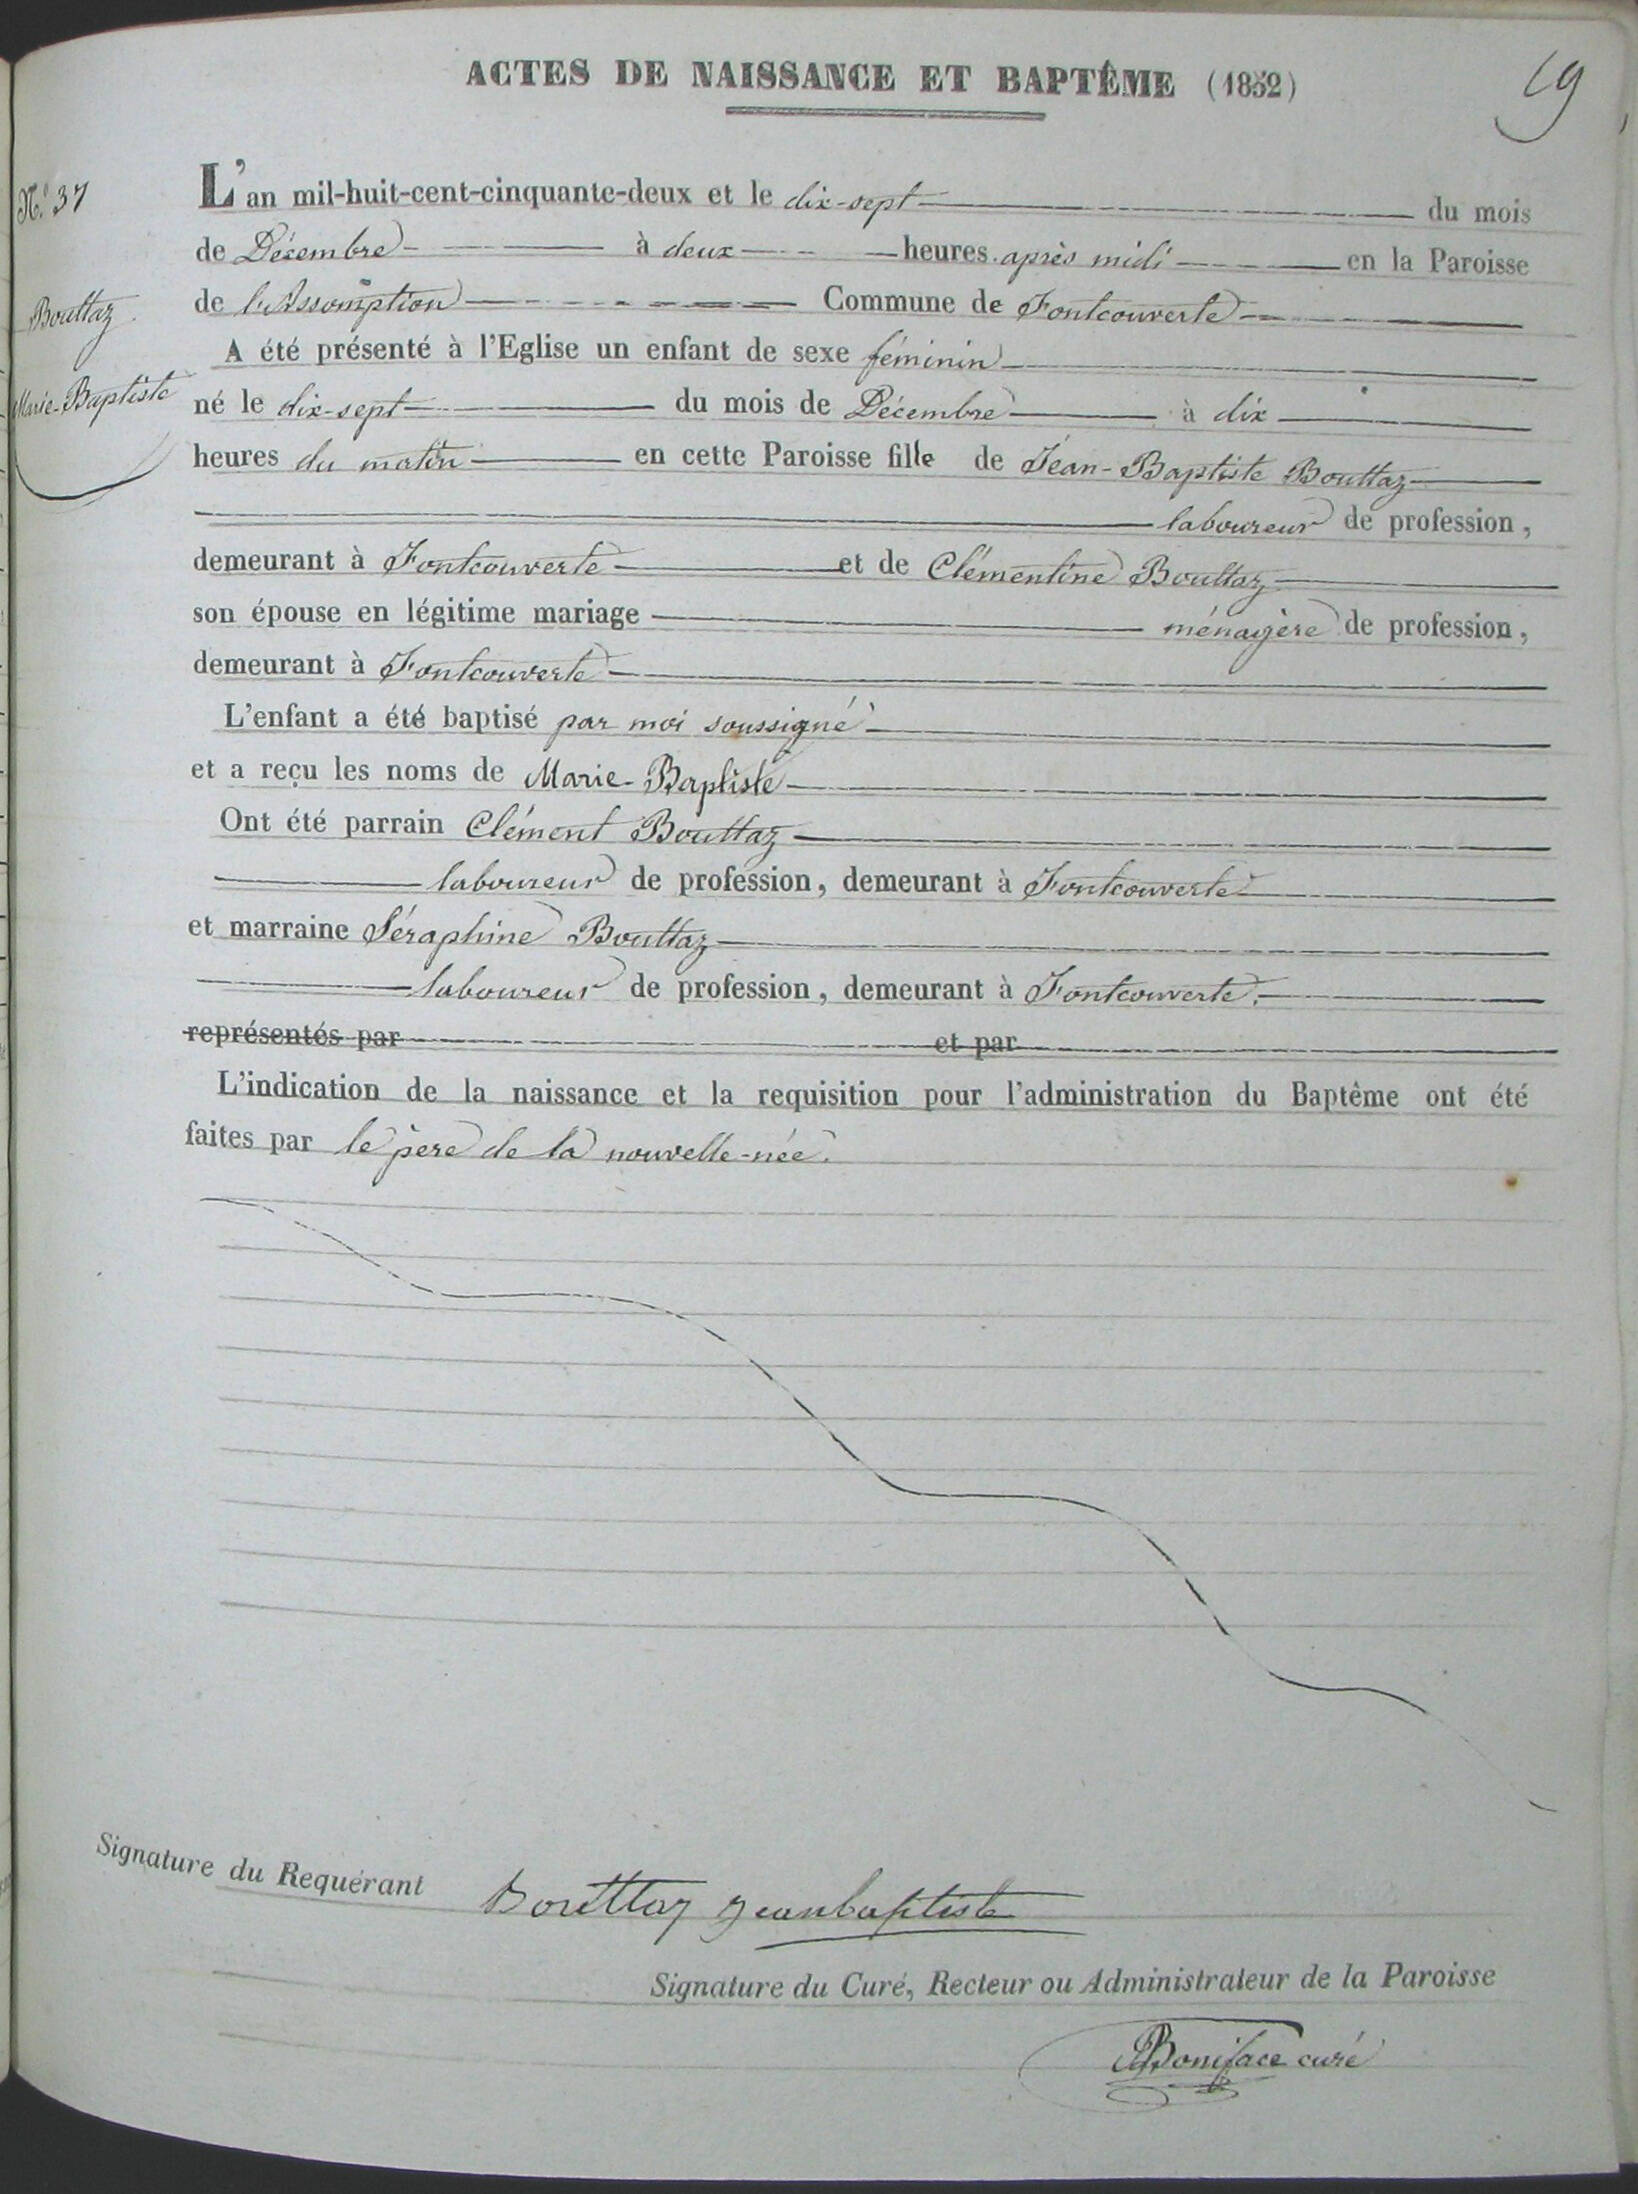 ACTES DE NAISSANCE ET BAPTÊME (1852)
19
N.º 37
Bouttaz
Marie-Baptiste
L'an mil-huit-cent-cinquante-deux et le dix-sept du mois
de Décembre à deux heures après midi en la Paroisse
de l'Assomption Commune de Fontcouverte
A été présenté à l'Eglise un enfant de sexe féminin
né le dix-sept du mois de Décembre à dix
heures du matin en cette Paroisse fille de Jean-Baptiste Bouttaz
laboureur de profession,
demeurant à Fontcouverte et de Clémentine Bouttaz
son épouse en légitime mariage ménagère de profession,
demeurant à Fontcouverte
L'enfant a été baptisé par moi soussigné
et a reçu les noms de Marie-Baptiste
Ont été parrain Clément Bouttaz
laboureur de profession, demeurant à Fontcouverte
et marraine Séraphine Bouttaz
laboureur de profession, demeurant à Fontcouverte.
représentés par et par
L'indication de la naissance et la requisition pour l'administration du Baptême ont été
faites par le père de la nouvelle-née.
Signature du Requérant Bouttaz jeanbaptiste
Signature du Curé, Recteur ou Administrateur de la Paroisse
Boniface curé